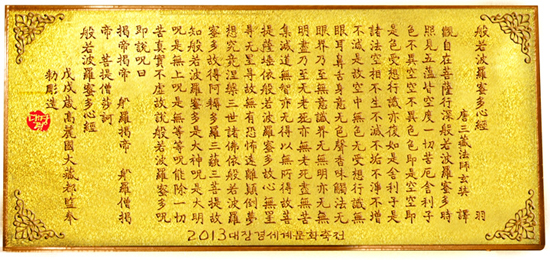 般若波羅蜜多心經 羽
唐三藏法師玄奘 譯
觀自在菩薩行深般若波羅蜜多時
照見五蘊皆空度一切苦厄舍利子
色不異空空不異色色卽是空空卽
是色受想行識亦復如是舍利子是
諸法空相不生不滅不垢不淨不增
不減是故空中無色無受想行識無
眼耳鼻舌身意無色聲香味觸法無
眼界乃至無意識界無無明亦無無
明盡乃至無老死亦無老死盡無苦
集滅道無智亦無得以無所得故菩
提薩埵依般若波羅蜜多故心無罣
㝵無罣㝵故無有恐怖遠離顚倒夢
想究竟涅槃三世諸佛依般若波羅
蜜多故得阿耨多羅三藐三菩提故
知般若波羅蜜多是大神呪是大明
呪是無上呪是無等等呪能除一切
苦眞實不虛故說般若波羅蜜多呪
卽說呪曰
揭帝揭帝 般羅揭帝 般羅僧揭
帝 菩提僧莎訶
般若波羅蜜多心經
戊戌歲高麗國大藏都監奉
勅彫造
2013대장경세계문화축전